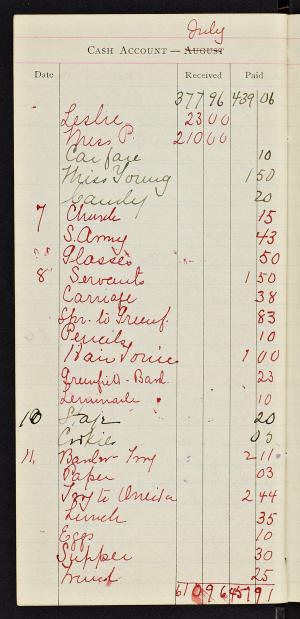 July
CASH ACCOUNT — AUGUST
Date Received Paid
377 96 439 06
Leslie 23 00
Miss P. 210 00
Car fare 10
Miss Young 1 50
Candy 20
7 Church 15
S. Army 43
Glasses 50
8 Servents 1 50
Carriage 38
Spr. to Greenf. 83
Pencils 10
Hair Tonic 1 00
Greenfield - 23
Lemonade 10
10 Stage 20
Cookies 05
11. 2 11
Paper 03
to Oneida 2 44
Lunch 35
Eggs 10
Supper 30
Fruit 25
610 96 457 91